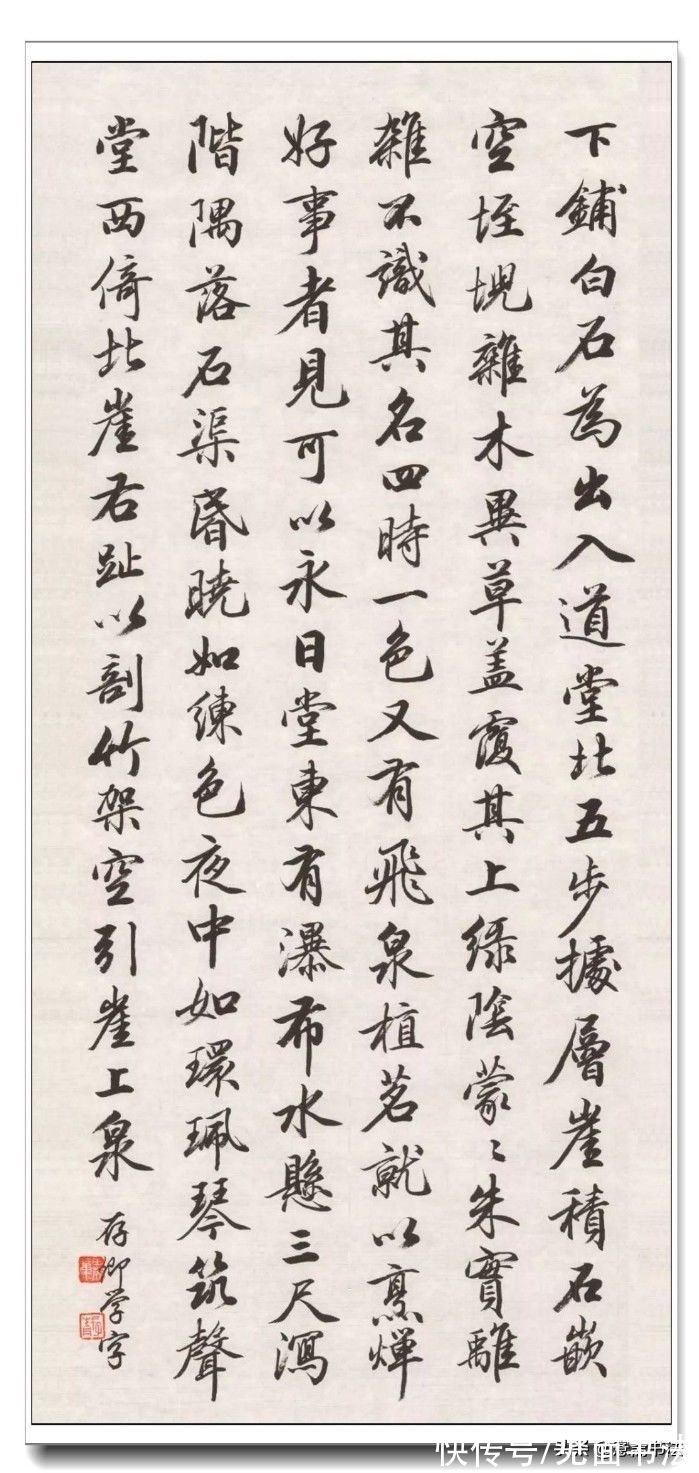 下鋪白石為出入道堂北五步據層崖積石嵌
空垤堄雜木異草盖覆其上綠陰蒙〻朱實離
雜不識其名四時一色又有飛泉植茗就以烹燀
好事者見可以永日堂東有瀑布水懸三尺瀉
階隅落石渠昬曉如練色夜中如環珮琴筑聲
堂西倚北崖右趾以剖竹架空引崖上泉
存卿学字
快传号/